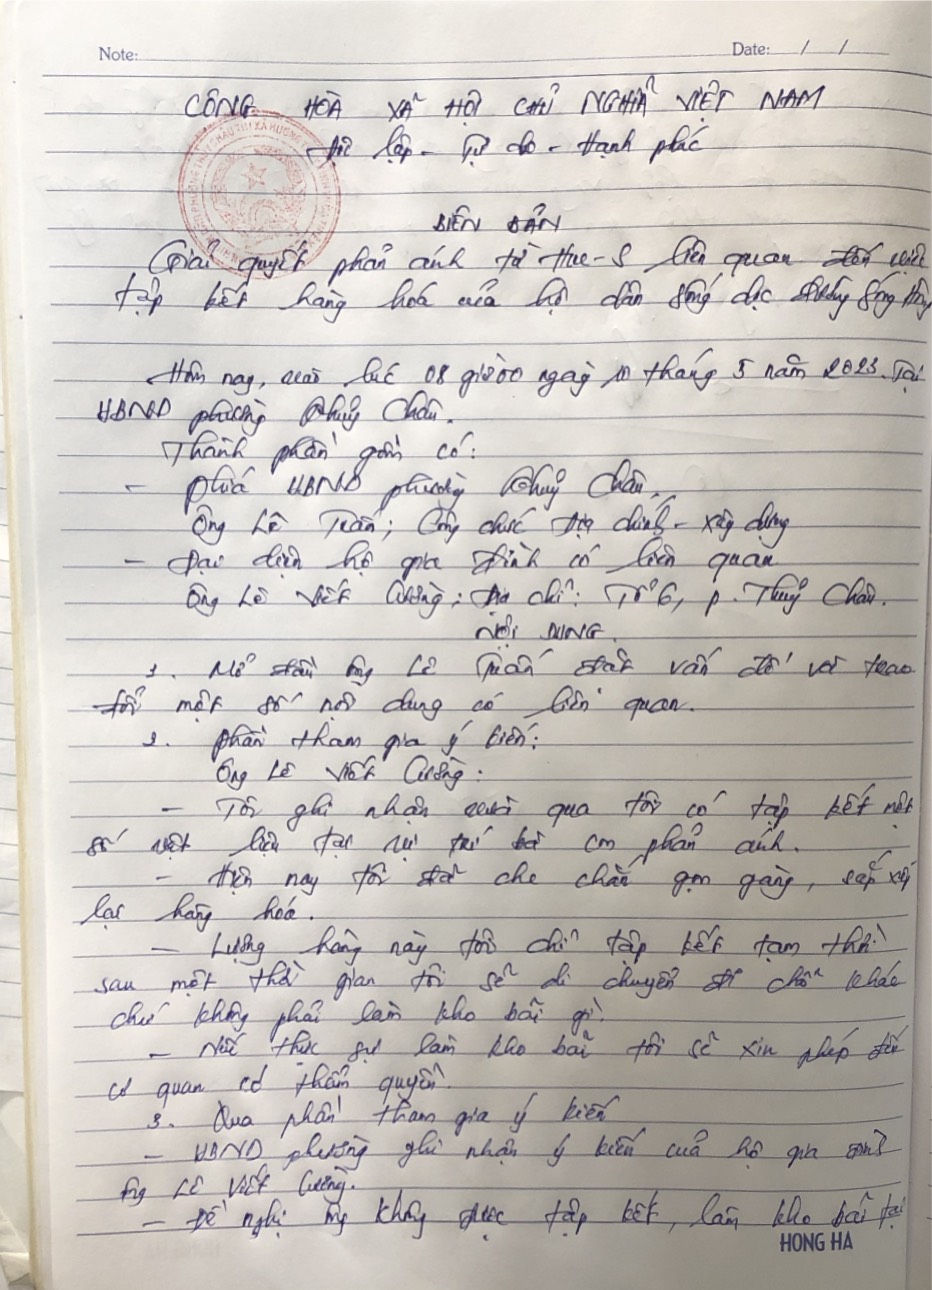 Note:
Date: / /
CÔNG HÒA XÃ HỘI CHỦ NGHĨA VIỆT NAM
Độc lập - Tự do - Hạnh phúc
BIÊN BẢN
Giải quyết phản ánh từ Hue-S liên quan đến việc
tập kết hàng hoá của hộ dân sống dọc đường Sóng Hồng
Hôm nay, vào lúc 08 giờ 00 ngày 10 tháng 5 năm 2023. Tại
UBND phường Thuỷ Châu.
Thành phần gồm có:
- Phía UBND phường Thuỷ Châu.
Ông Lê Tuấn; Công chức Địa chính - Xây dựng
- Đại diện hộ gia đình có liên quan
Ông Lê Viết Cường; Địa chỉ: Tổ 6, p. Thuỷ Châu.
NỘI DUNG.
1. Mở đầu ông Lê Tuấn đặt vấn đề và trao
đổi một số nội dung có liên quan.
2. Phần tham gia ý kiến:
Ông Lê Viết Cường:
- Tôi ghi nhận vừa qua tôi có tập kết một
số vật liệu tại vị trí bà con phản ánh.
- Hiện nay tôi đã che chắn gọn gàng, sắp xếp
lại hàng hoá.
- Lượng hàng này tôi chỉ tập kết tạm thời
sau một thời gian tôi sẽ di chuyển đi chỗ khác
chứ không phải làm kho bãi gì.
- Nếu thực sự làm kho bãi tôi sẽ xin phép đến
cơ quan có thẩm quyền.
3. Qua phần tham gia ý kiến
- UBND phường ghi nhận ý kiến của hộ gia đình
ông Lê Viết Cường.
- Đề nghị ông không được tập kết, làm kho bãi tại
HONG HA